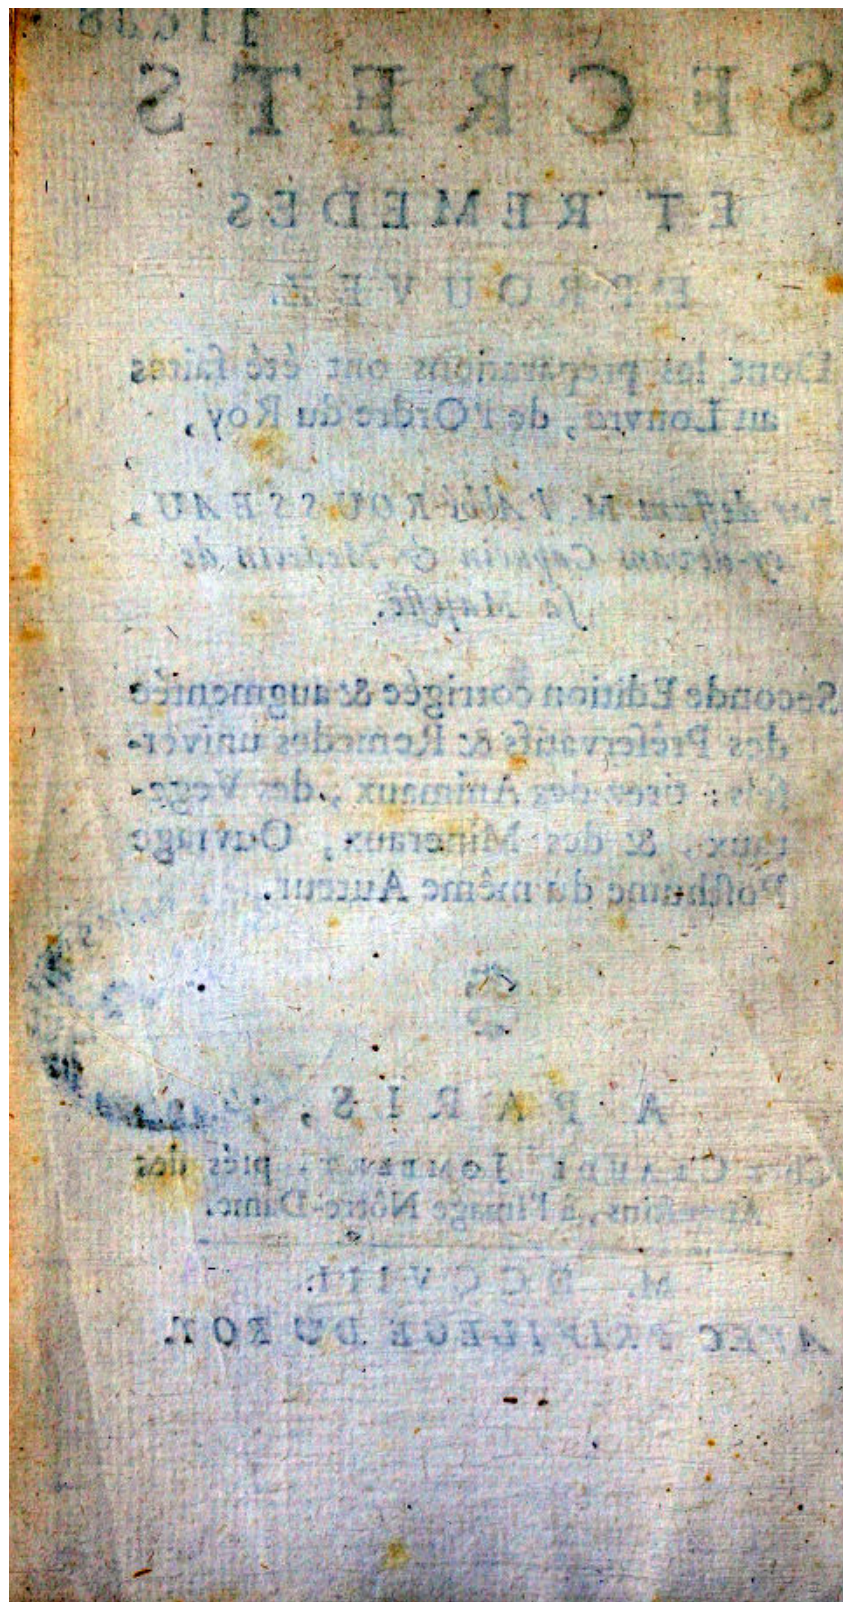 SECRETS
ET REMEDES
EPROUVEZ
Dont les préparations ont été faites
au Louvre, de l'Ordre du Roy,
Par deffunt M. l'Abbé ROUSSEAU,
cy-devant Capucin & Medecin de
sa Majesté.
Seconde Edition corrigée & augmentée
des Préservatifs & Remedes univer-
sels; tirez des Animaux, des Vege-
taux, & des Mineraux, Ouvrage
Posthume du même Auteur.
A PARIS,
Chez CLAUDE JOMBERT, prés des
Augustins, à l'image Nôtre-Dame.
M. DCCVIII.
AVEC PRIVILEGE DU ROY.